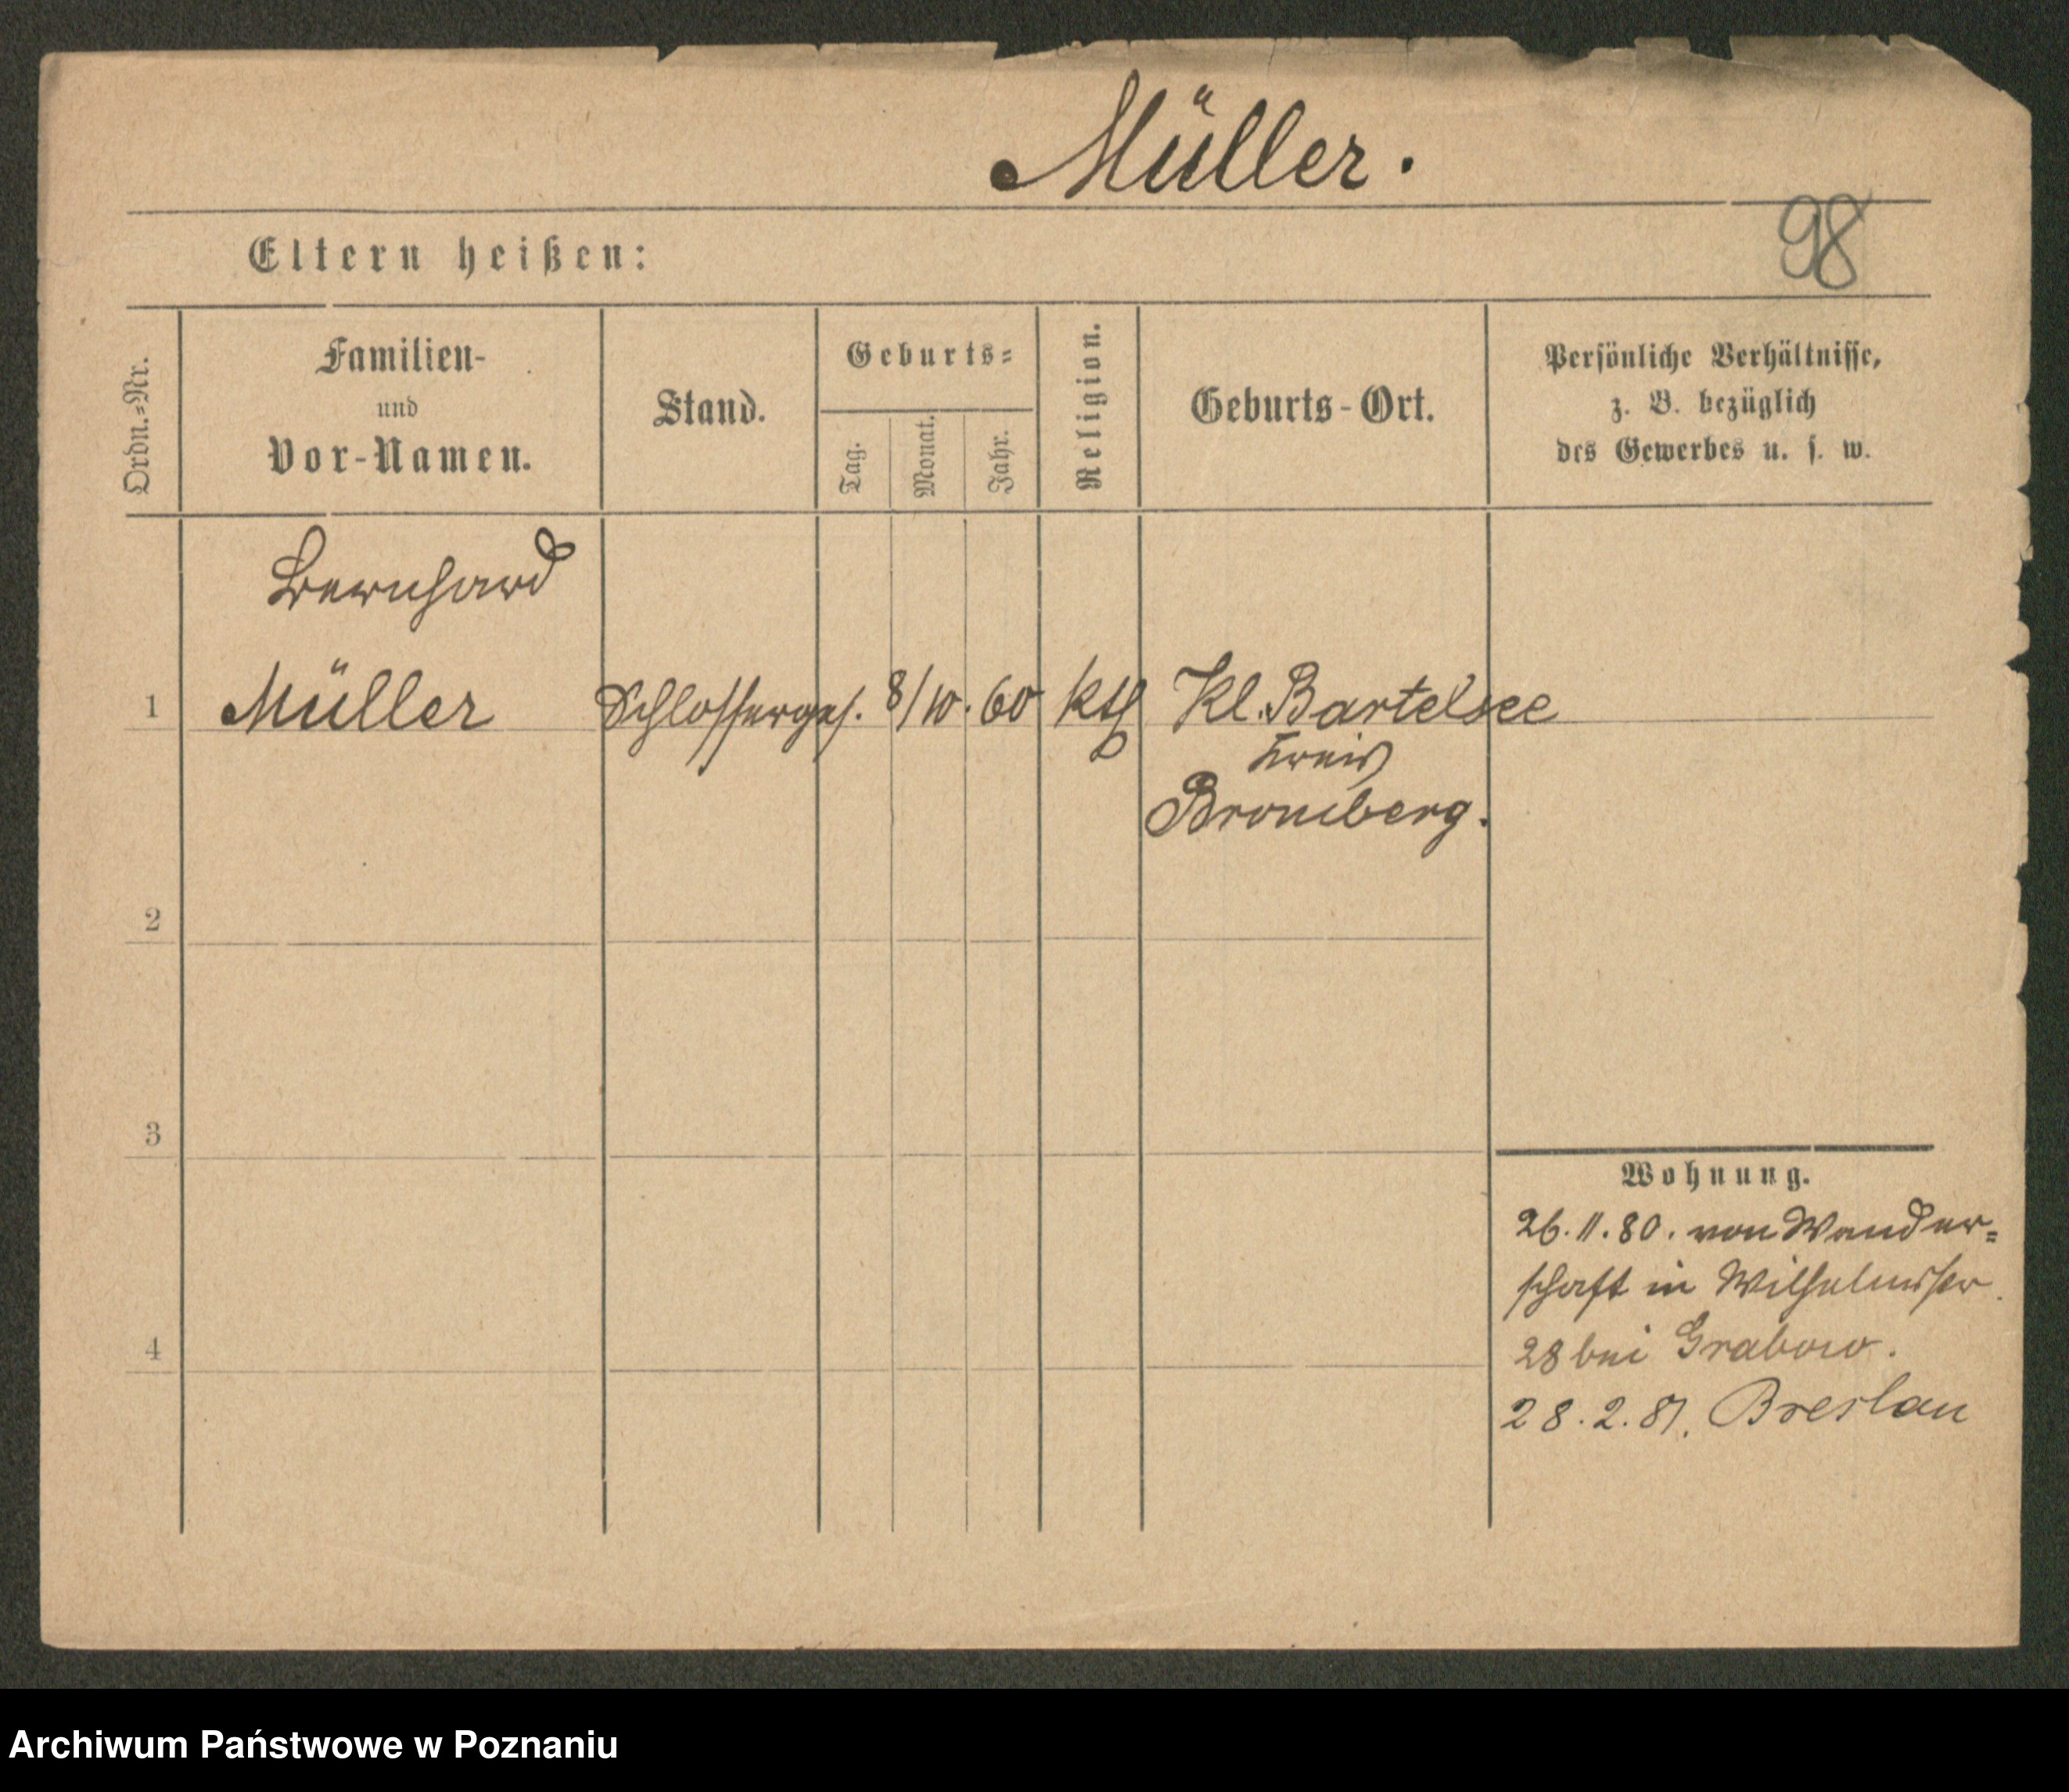 Müller.
98
Eltern heißen:
Ordn.=Nr.
Familien-
und
Vor-Namen.
Stand.
Geburts=
Tag.
Monat.
Jahr.
Religion.
Geburts-Ort.
Persönliche Verhältnisse,
z. B. bezüglich
des Gewerbes u. s. w.
Bernhard
1 Müller Schlosserges. 8/10. 60 kth Kl. Bartelsee
Kreis
Bromberg.
2
3
4
Wohnung.
26. 11. 80. von Wander=
schaft in Wilhelmsstr.
28 bei Grabow.
28. 2. 81. Breslau
Archiwum Państwowe w Poznaniu